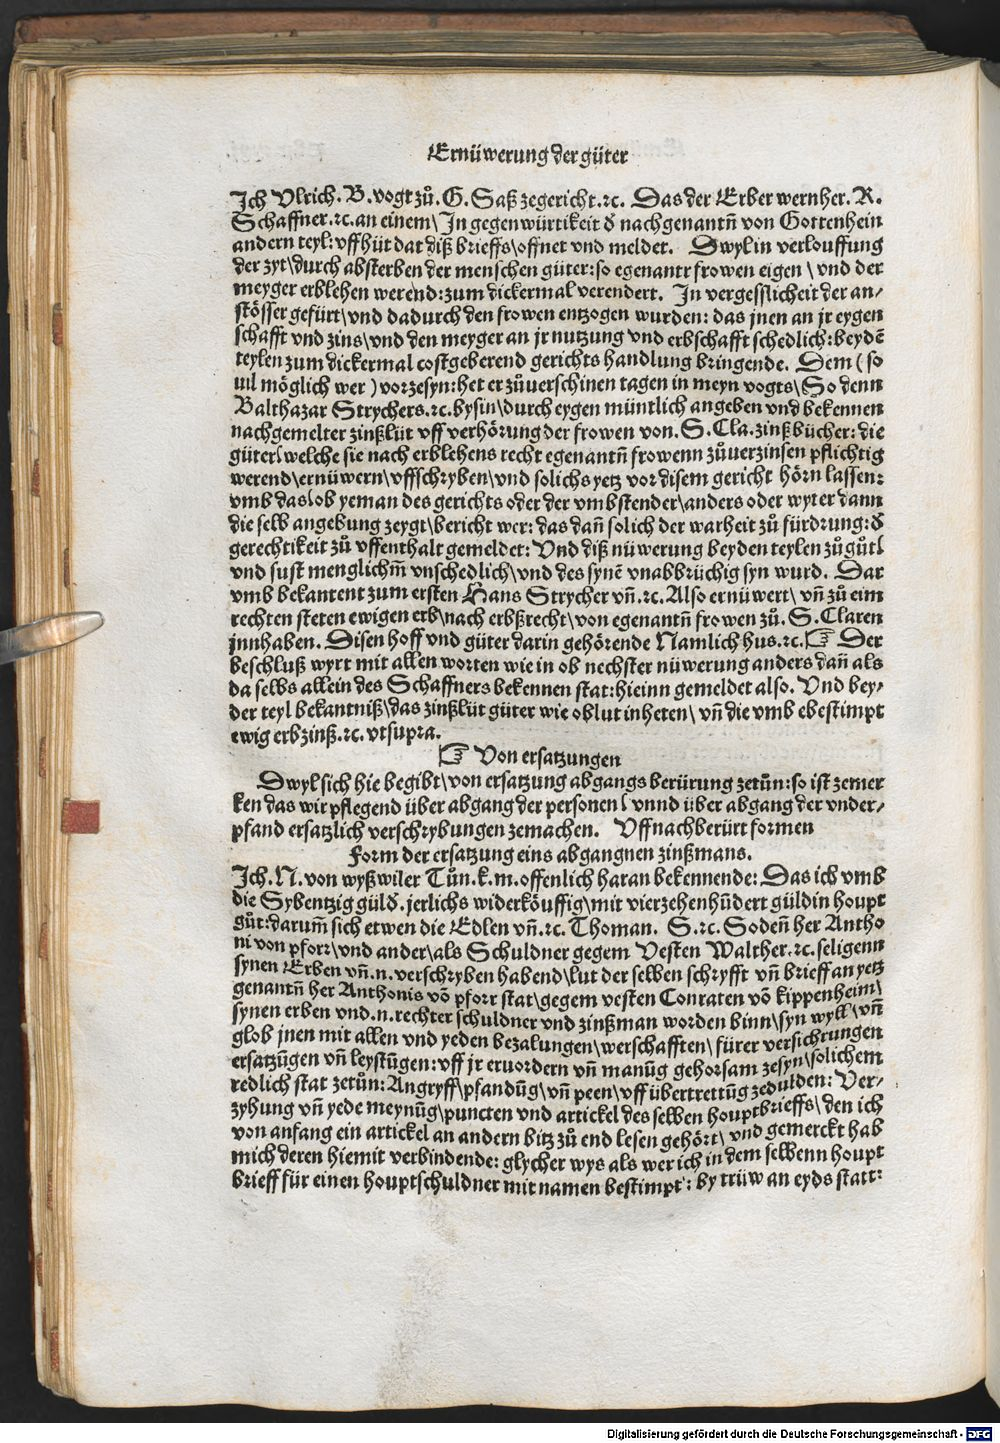 Ernüwerung der güter
Ich Vlrich. B. vogt zů. G. Saß zegericht. ꝛc. Das der Erber wernher. R.
Schaffner. ꝛc. an einem \ In gegenwürtikeit ð nachgenantñ von Gottenhein
andern teyl: vff hüt dat diß brieffs \ offnet vnd meldet. Dwyl in verlouffung
der zyt \ durch absterben der menschen güter: so egenantr frowen eigen \ vnd der
meyger erblehen werend: zum dickermal verendert. In vergesslicheit der an⸗
stösser gefürt \ vnd dadurch den frowen entzogen wurden: das jnen an jr eygen
schafft vnd zins \ vnd den meyger an jr nutzung vnd erbschafft schedlich: beydē
teylen zum dickermal costgeberend gerichts handlung bringende. Dem ( so
uil möglich wer ) vorzesyn: het er zůuerschinen tagen in meyn vogts \ So denn
Balthazar Strychers. ꝛc. bysin \ durch eygen müntlich angeben vnd bekennen
nachgemelter zinßlüt vff verhörung der frowen von. S. Cla. zinßbücher: die
güter \ welche sie nach erblehens recht egenantñ frowenn zůuerzinsen pflichtig
werend \ ernüwern \ vffschryben \ vnd solichs yetz vor disem gericht hörn lassen:
vmb das \ ob yeman des gerichts oder der vmbstender \ anders oder wyter dann
die selb angebung zeygt \ bericht wer: das dañ solich der warheit zů fürdrung: ð
gerechtikeit zů vffenthalt gemeldet: Vnd diß nüwerung beyden teylen zů gůt \
vnd sust menglichm̄ vnschedlich \ vnd des synē vnabbrüchig syn wurd. Dar
vmb bekantent zum ersten Hans Strycher vñ. ꝛc. Also ernüwert \ vñ zů eim
rechten steten ewigen erb \ nach erbßrecht \ von egenantñ frowen zů. S. Claren
jnnhaben. Disen hoff vnd güter darin gehörende Namlich hus. ꝛc. ☞ Der
beschluß wyrt mit allen worten wie in ob nechster nüwerung anders dañ als
da selbs allein des Schaffners bekennen stat: hieinn gemeldet also. Vnd bey⸗
der teyl bekantniß \ das zinßlüt güter wie oblut inheten \ vñ die vmb ebestimpt
ewig erbzinß. ꝛc. vtsupra.
☞ Von ersatzungen
Dwyl sich hie begibt \ von ersatzung abgangs berürung zetůn: so ist zemer
ken das wir pflegend über abgang der personen \ vnnd über abgang der vnder⸗
pfand ersatzlich verschrybungen zemachen. Vff nachberürt formen
Form der ersatzung eins abgangnen zinßmans.
Ich. N. von wyßwiler Tůn. k. m. offenlich haran bekennende: Das ich vmb
die Sybentzig güld. jerlichs widerköuffig \ mit vierzehenhūdert güldin houpt
gůt: darum̄ sich etwen die Edlen vñ. ꝛc. Thoman. S. ꝛc. Sodeñ her Antho
ni von pforr \ vnd ander \ als Schuldner gegem Vesten Walther. ꝛc. seligenn
synen Erben vñ. n. verschryben habend \ lut der selben schryfft vñ brieff an yetz
genantñ her Anthonis vō pforr stat \ gegem vesten Conraten vō kippenheim \
synen erben vnd. n. rechter schuldner vnd zinßman worden binn \ syn wyll \ vñ
glob jnen mit allen vnd yeden bezalungen \ werschafften \ fürer versichrungen
ersatzūgen vñ leystūgen: vff jr eruordern vñ manūg gehorsam zesyn \ solichem
redlich stat zetůn: Angryff \ pfandūg \ vñ peen \ vff übertrettūg zedulden: Ver⸗
zyhung vñ yede meynūg \ puncten vnd artickel des selben houptbrieffs \ den ich
von anfang ein artickel an andern bitz zů end lesen gehört \ vnd gemerckt hab
mich deren hiemit verbindende: glycher wys als wer ich in dem selbenn houpt
brieff für einen houptschuldner mit namen bestimpt: by trüw an eyds statt:
Digitalisierung gefördert durch die Deutsche Forschungsgemeinschaft - DFG